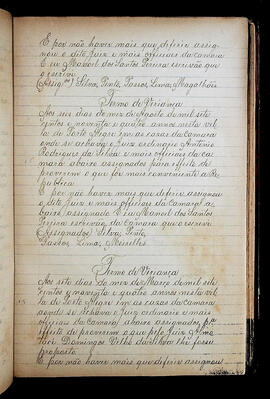 E por não haver mais que deferir assig-
nou o dito Juiz e mais officiaes da camara
E eu Manoel dos Santos Pereira escrivão que
o escrevi.
(Assig.os) Silva, Pinto, Passos, Lima, Magalhães
Termo de Veriança
Aos seis dias do mez de Agosto de mil sete
centos e noventa e quatro annos nesta vil-
la de Porto Alegre em as casas da camara
onde se achava o Juiz ordinario Antonio
Rodrigues da Silva e mais officiaes da Ca-
mara abaixo assignados para effeito de
proverem o que for mais conveniente a Re-
publica
E por não haver mais que deferir assignou
o dito Juiz e mais officiaes da Camara a-
baixo assignado E eu Manoel dos Santos
Pereira escrivão da camara que o escrevi
(Assignados) Silva, Pinto,
Passos, Lima, Meirelles
Termo de Veriança
Aos sete dias do mez de Março de mil sete
centos e noventa e quatro annos nesta vil-
la de Porto Alegre em as casas da camara
aonde se achava o Juiz ordinario e mais
officiaes da camara abaixo assignados, p.a
effeito de proverem o que pelo Juiz
Domingos
proposto
E por não haver mais que deferir assignou